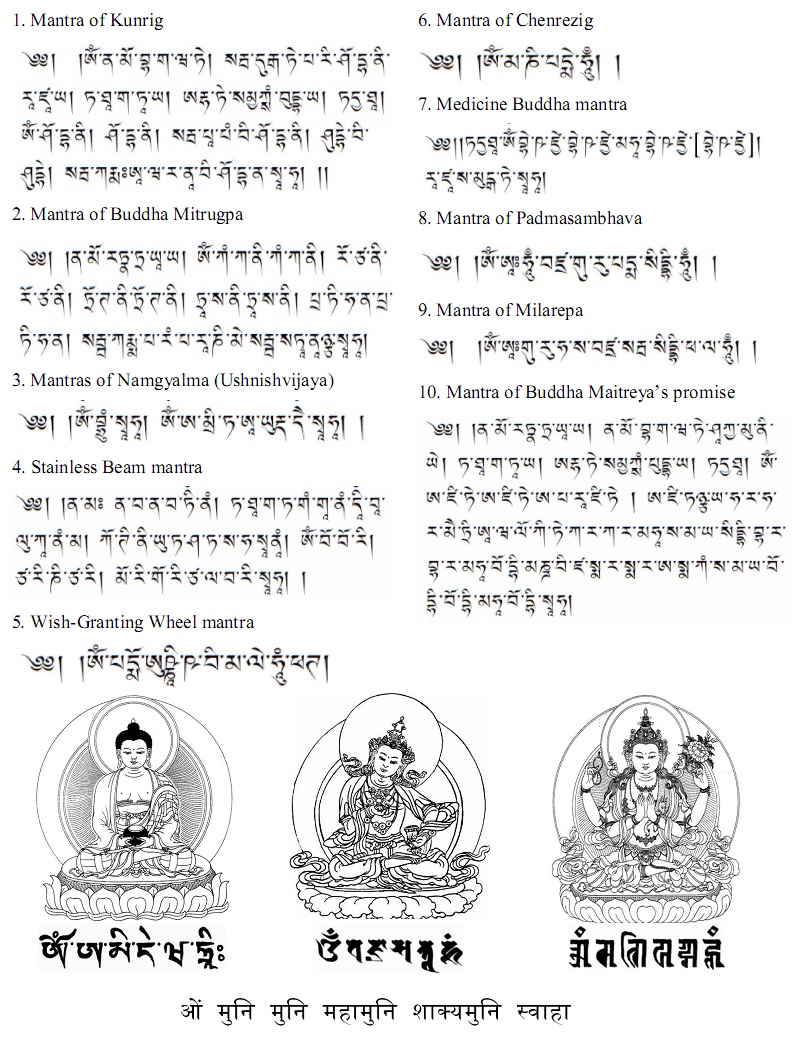 1. Mantra of Kunrig
༄༅། །ཨོཾ་ན་མོ་བྷ་ག་ཝ་ཏེ། སརྦ་དུརྒ་ཏེ་པ་རི་ཤོ་དྷ་ནི་
རཱ་ཛཱ་ཡ། ཏ་ཐཱ་ག་ཏཱ་ཡ། ཨརྷ་ཏེ་སམྱཀྶཾ་བུདྡྷ་ཡ། ཏདྱ་ཐཱ།
ཨོཾ་ཤོ་དྷ་ནི། ཤོ་དྷ་ནི། སརྦ་པཱ་པཾ་བི་ཤོ་དྷ་ནི། ཤུདྡྷེ་བི་
ཤུདྡྷེ། སརྦ་ཀརྨཿཨཱ་ཝ་ར་ཎཱ་བི་ཤོ་དྷ་ན་སྭཱ་ཧཱ། །།
2. Mantra of Buddha Mitrugpa
༄༅། །ན་མོ་རཏྣ་ཏྲ་ཡཱ་ཡ། ཨོཾ་ཀཾ་ཀ་ནི་ཀཾ་ཀ་ནི། རོ་ཙ་ནི་
རོ་ཙ་ནི། ཏྲོ་ཊ་ནི་ཏྲོ་ཊ་ནི། ཏྲཱ་ས་ནི་ཏྲཱ་ས་ནི། པྲ་ཏི་ཧ་ན་པྲ་
ཏི་ཧ་ན། སརྦ་ཀརྨ་པ་རཾ་པ་རཱ་ཎི་མེ་སརྦ་སཏྭཱ་ནཱཉྩ་སྭཱ་ཧཱ།
3. Mantras of Namgyalma (Ushnishvijaya)
༄༅། །ཨོཾ་བྷྲཱུཾ་སྭཱ་ཧཱ། ཨོཾ་ཨ་མྲི་ཏ་ཨཱ་ཡུརྡ་དེ་སྭཱ་ཧཱ། །
4. Stainless Beam mantra
༄༅། །ན་མཿ ན་བ་ན་བ་ཏི་ནཾ། ཏ་ཐཱ་ག་ཏ་གཾ་གཱ་ནཾ་དཱི་བཱ་
ལུ་ཀཱ་ནཾ་མ། ཀོ་ཊི་ནི་ཡུ་ཏ་ཤ་ཏ་ས་ཧ་སྲཱ་ནཱཾ། ཨོཾ་བོ་བོ་རི།
ཙ་རི་ཎི་ཙ་རི། མོ་རི་གོ་རི་ཙ་ལ་བ་རི་སྭཱ་ཧཱ། །
5. Wish-Granting Wheel mantra
༄༅། །ཨོཾ་པདྨོ་ཨུཥྞཱི་ཥ་བི་མ་ལེ་ཧཱུྃ་ཕཊ།
6. Mantra of Chenrezig
༄༅། །ཨོཾ་མ་ཎི་པདྨེ་ཧཱུྃ། །
7. Medicine Buddha mantra
༄༅། །ཏདྱཐཱ་ཨོཾ་བྷཻ་ཥ་ཛྱེ་བྷཻ་ཥ་ཛྱེ་མཧཱ་བྷཻ་ཥ་ཛྱེ་[བྷཻ་ཥ་ཛྱེ]།
རཱ་ཛཱ་ས་མུདྒ་ཏེ་སྭཱ་ཧཱ།
8. Mantra of Padmasambhava
༄༅། །ཨོཾ་ཨཱཿཧཱུྃ་བཛྲ་གུ་རུ་པདྨ་སིདྡྷི་ཧཱུྃ། །
9. Mantra of Milarepa
༄༅། །ཨོཾ་ཨཱཿགུ་རུ་ཧ་ས་བཛྲ་སརྦ་སིདྡྷི་ཕ་ལ་ཧཱུྃ། །
10. Mantra of Buddha Maitreya’s promise
༄༅། །ན་མོ་རཏྣ་ཏྲ་ཡཱ་ཡ། ན་མོ་བྷ་ག་ཝ་ཏེ་ཤཱཀྱ་མུ་ནི་
ཡེ། ཏ་ཐཱ་ག་ཏཱ་ཡ། ཨརྷ་ཏེ་སམྱཀྶཾ་བུདྡྷ་ཡ། ཏདྱཐཱ། ཨོཾ་
ཨ་ཛི་ཏེ་ཨ་ཛི་ཏེ་ཨ་པ་རཱ་ཛི་ཏེ ། ཨ་ཛི་ཏཉྩ་ཡ་ཧ་ར་ཧ་
ར་མཻ་ཏྲི་ཨཱ་ཝ་ལོ་ཀི་ཏེ་ཀ་ར་ཀ་ར་མཧཱ་ས་མ་ཡ་སིདྡྷི་བྷ་ར་
བྷ་ར་མཧཱ་བོ་དྷི་མཎྜ་བི་ཛ་སྨ་ར་སྨ་ར་ཨ་སྨ་ཀཾ་ས་མ་ཡ་བོ་
དྷི་བོ་དྷི་མཧཱ་བོ་དྷི་སྭཱ་ཧཱ།
ཨོཾ་ཨ་མི་དེ་ཝ་ཧྲཱིཿ
ओं मुनि मुनि महामुनि शाक्यमुनि स्वाहा